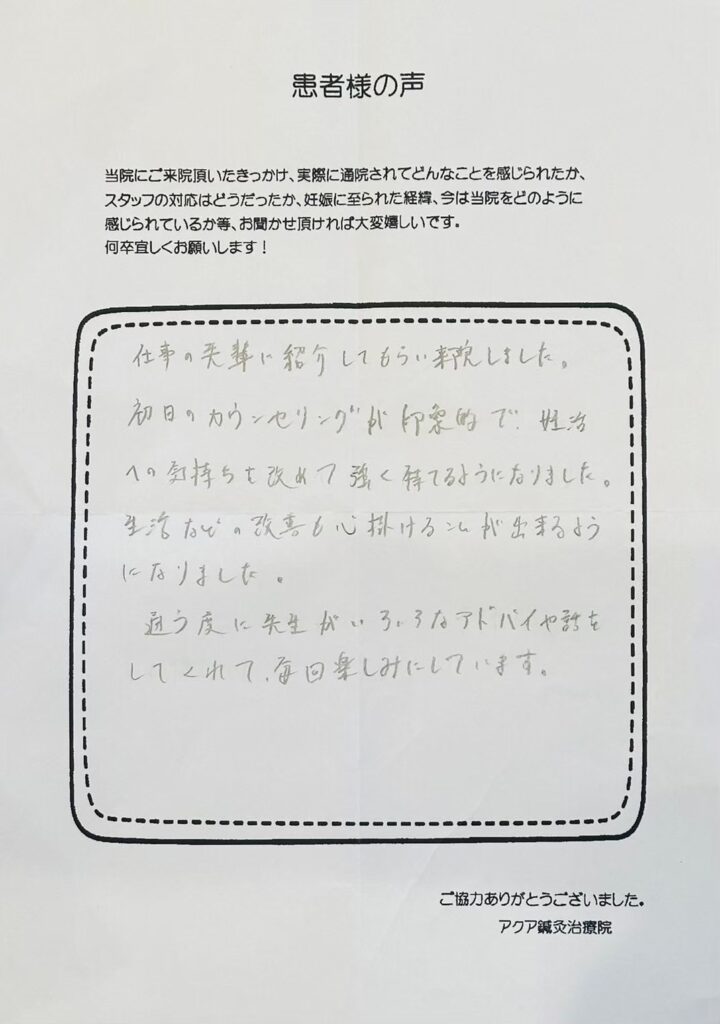 患者様の声
当院にご来院頂いたきっかけ、実際に通院されてどんなことを感じられたか、
スタッフの対応はどうだったか、妊娠に至られた経緯、今は当院をどのように
感じられているか等、お聞かせ頂ければ大変嬉しいです。
何卒宜しくお願いします！
仕事の先輩に紹介してもらい来院しました。
初日のカウンセリングが印象的で、妊活
への気持ちを改めて強く持てるようになりました。
生活などの改善も心掛けることが出来るよう
になりました。
通う度に先生がいろいろなアドバイや話を
してくれて、毎回楽しみにしています。
ご協力ありがとうございました。
アクア鍼灸治療院